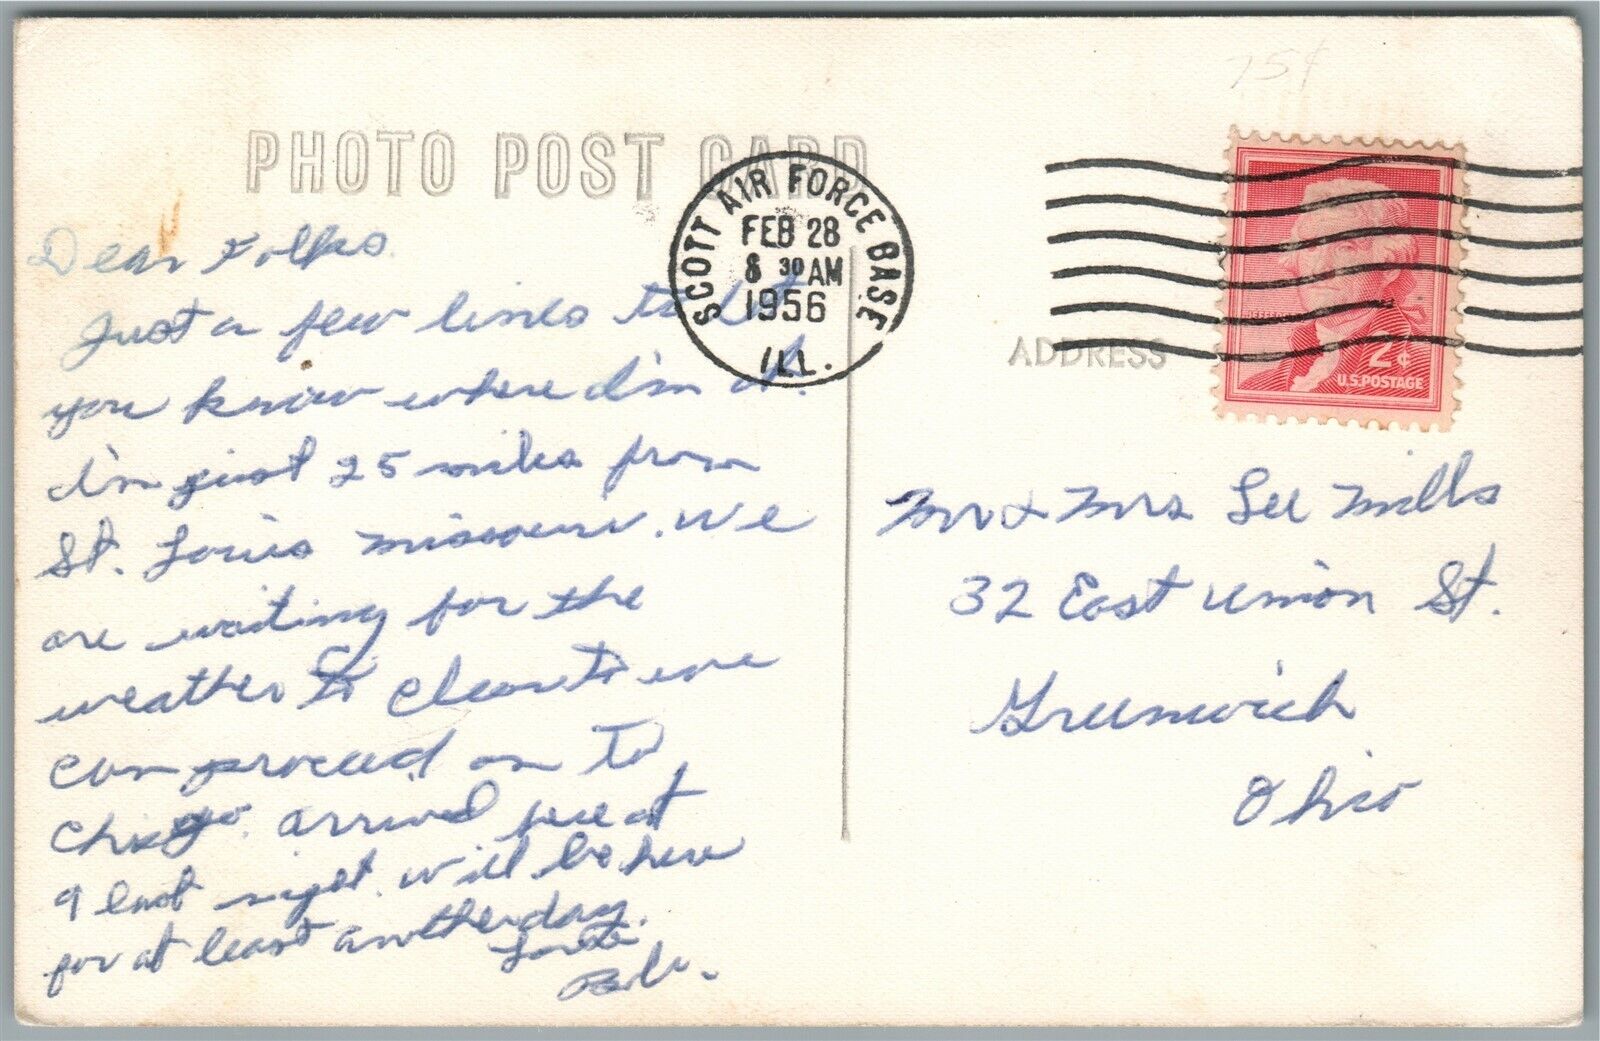 75¢
PHOTO POST CARD
SCOTT AIR FORCE BASE
FEB 28
8 30 AM
1956
ILL.
JEFFERSON
2¢
U.S. POSTAGE
ADDRESS
Dear Folks.
Just a few lines to let
you know where I'm at.
I'm just 25 miles from
St. Louis Missouri. We
are waiting for the
weather to clear to we
can proceed on to
Chicago. arrived here at
9 last night. will be here
for at least another day.
Love
Bob.
Mr & Mrs Lee Mills
32 East Union St.
Greenwich
Ohio